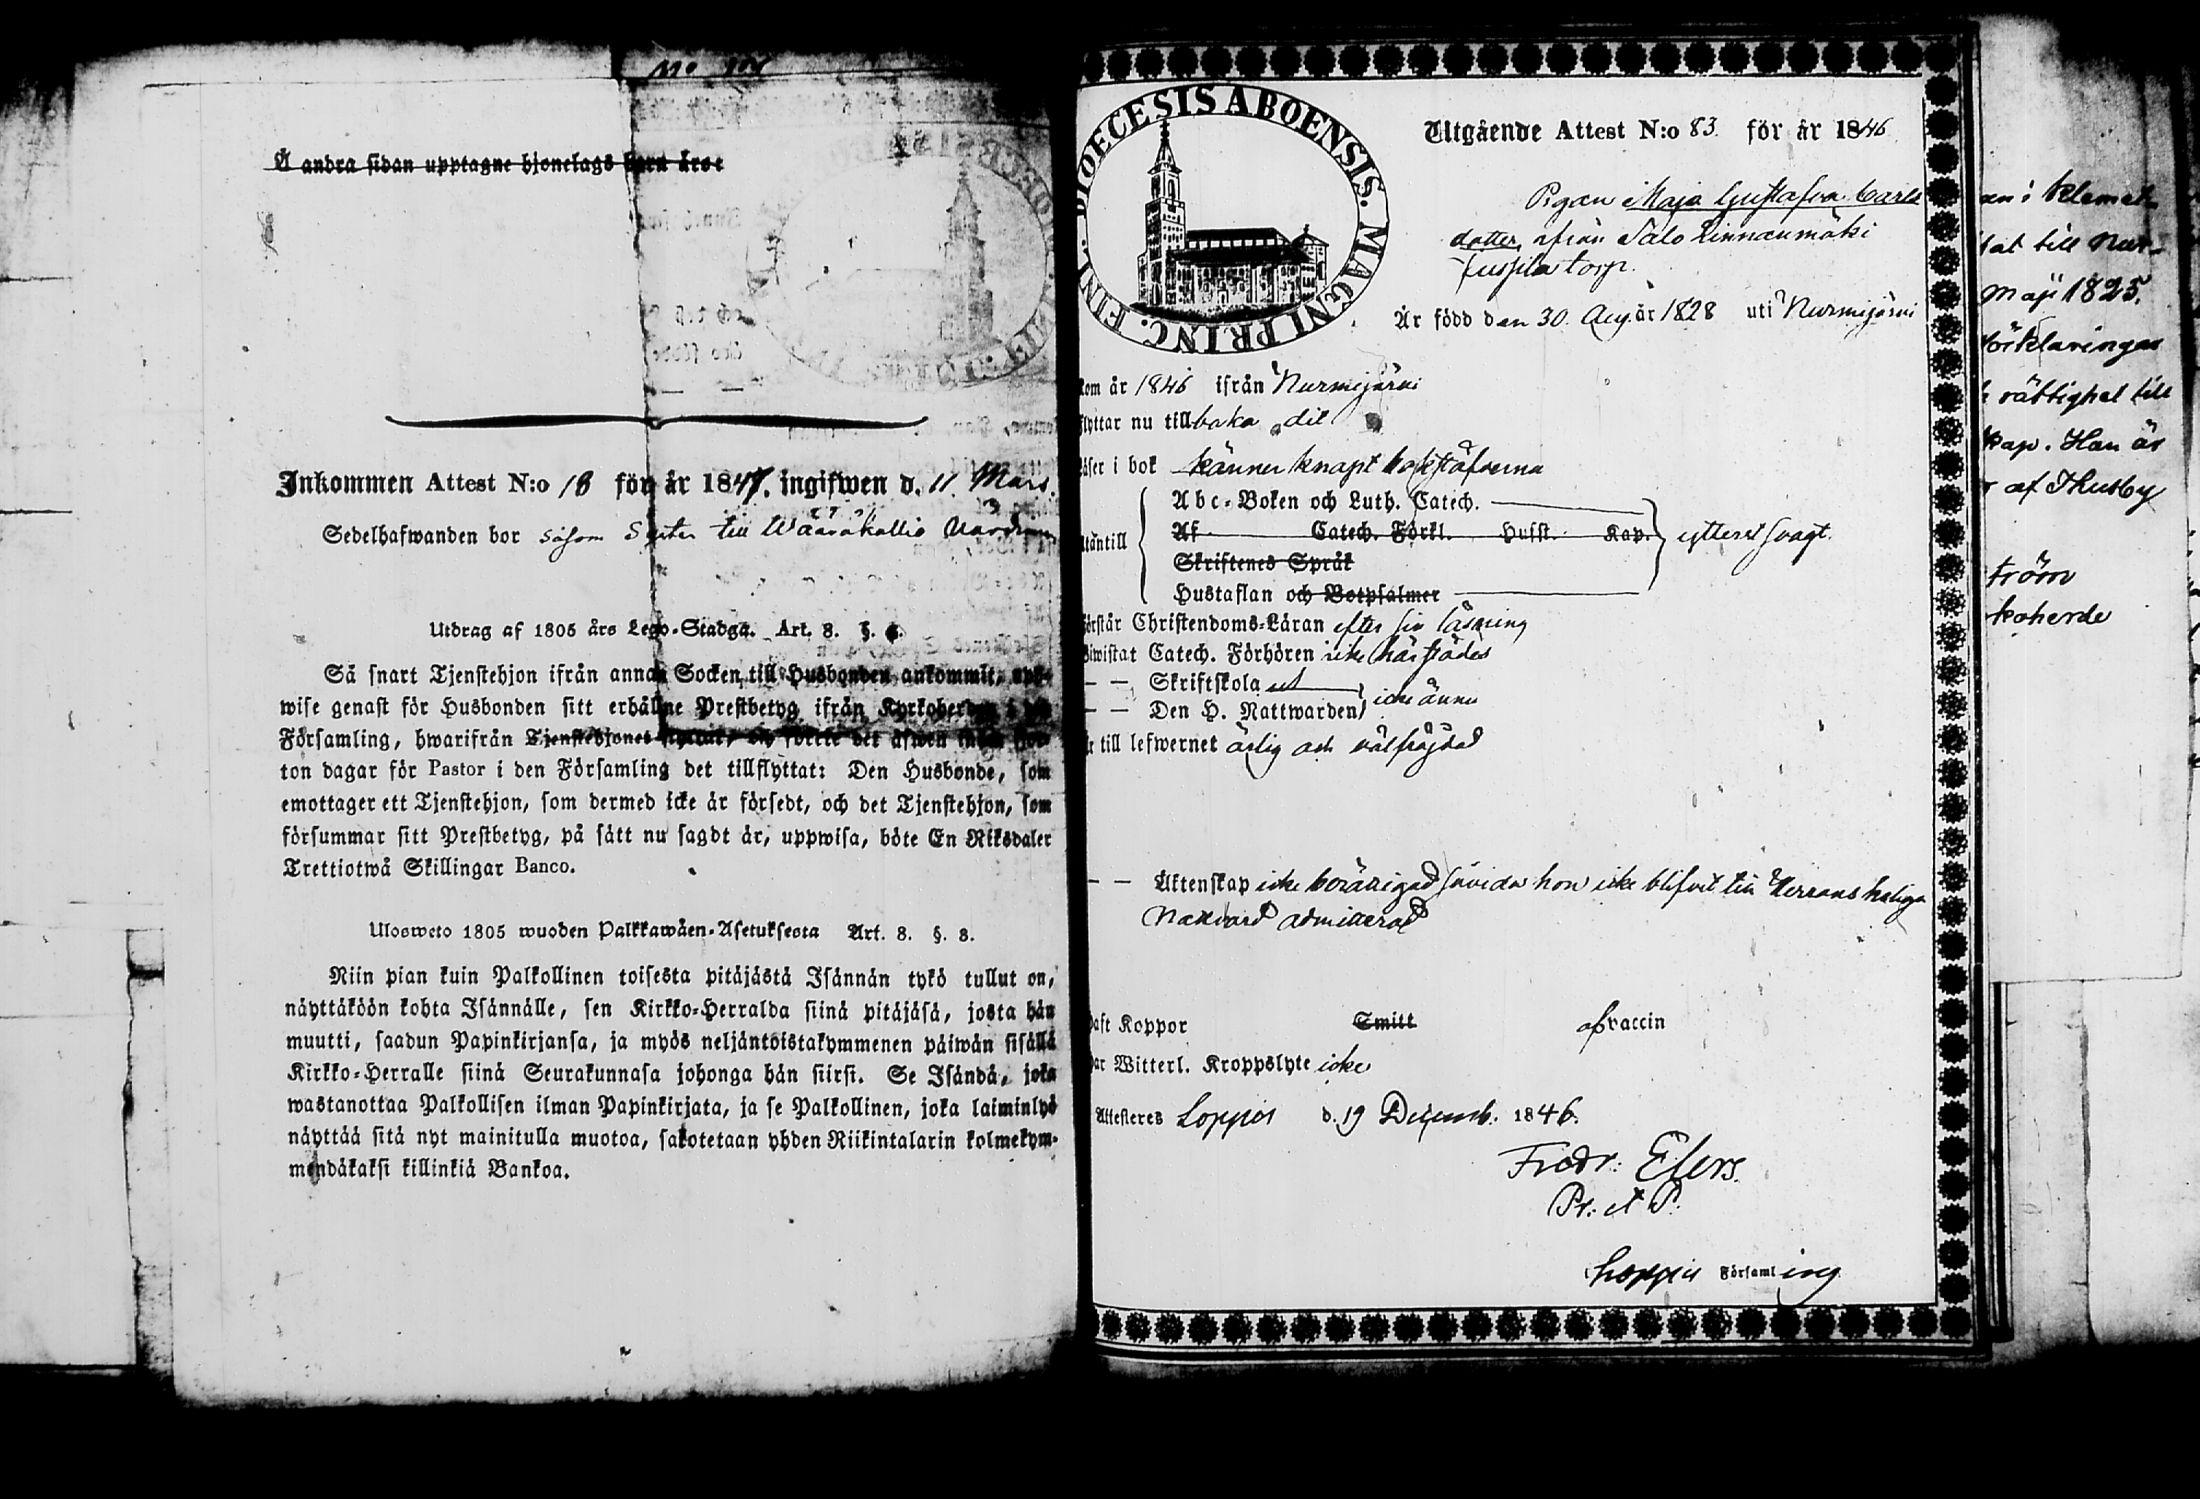 Å andra sidan upptagne hjonelags barn äro:
Inkommen Attest N:o 18 för år 1847. ingifwen d. 11 Mars.
Sedelhafwanden bor såsom Syster till Wääräkallio
Utdrag af 1805 års Lego-Stadga. Art. 8. §.
Så snart Tjenstehjon ifrån annan Socken till Husbonden ankommit, upp-
wise genast för Husbonden sitt erhållne Prestbetyg ifrån Kyrkoherden i den
Församling, hwarifrån Tjenstehjonet flyttat, och förete det äfwen inom fjor-
ton dagar för Pastor i den Församling det tillflyttat: Den Husbonde, som
emottager ett Tjenstehjon, som dermed icke är försedt, och det Tjenstehjon, som
försummar sitt Prestbetyg, på sätt nu sagdt är, uppwisa, böte En Riksdaler
Trettiotwå Skillingar Banco.
Ulosweto 1805 wuoden Palkkawäen-Asetuksesta Art. 8. §. 8.
Niin pian kuin Palkollinen toisesta pitäjästä Isännän tykö tullut on,
näyttäköön kohta Isännälle, sen Kirkko-Herralda siinä pitäjäsä, josta hän
muutti, saadun Papinkirjansa, ja myös neljäntoistakymmenen päiwän sisällä
Kirkko-Herralle siinä Seurakunnasa johonga hän siirsi. Se Isändä, joka
wastanottaa Palkollisen ilman Papinkirjata, ja se Palkollinen, joka laiminlyö
näyttää sitä nyt mainitulla muotoa, sakotetaan yhden Riikintalarin kolmekym-
mendäkaksi killinkiä Bankoa.
DIOECESIS ABOENSIS. MAGNI PRINC. FINL.
Utgående Attest N:o 83 för år 1846
Pigan Maja Gustafva Carls
dotter, ifrån Salo Linnanmäki
torp.
Är född den 30. Aug. år 1828 uti Nurmijärvi
kom år 1846 ifrån Nurmijärvi
flyttar nu tillbaka dit
Läser i bok känner knapt bokstäfverna
Abc-Boken och Luth. Catech.
Af Catech. Förkl. Husst. Kap.
utantill ytterst svagt.
Skriftenes Språk
Hustaflan och Botpsalmer
förstår Christendoms-Läran efter sin läsning
Biwistat Catech. Förhören icke härstädes
— — Skriftskola
— — Den H. Nattwarden icke ännu
är till lefwernet ärlig och välfrägdad
— — Äktenskap icke berättigad såvida hon icke blifvit till Herrans heliga
Nattvard admitterad
haft Koppor Smitt af vaccin
har Witterl. Kroppslyte icke
Attesteres Loppis d. 19 Decemb. 1846.
Fredr: Elers.
Pr. et P.
Loppis Församling
an i Klemet
tat till Nur-
Maji 1825.
förklaringar
rättighet till
kap. Han är
af Thusby
ström
koherde